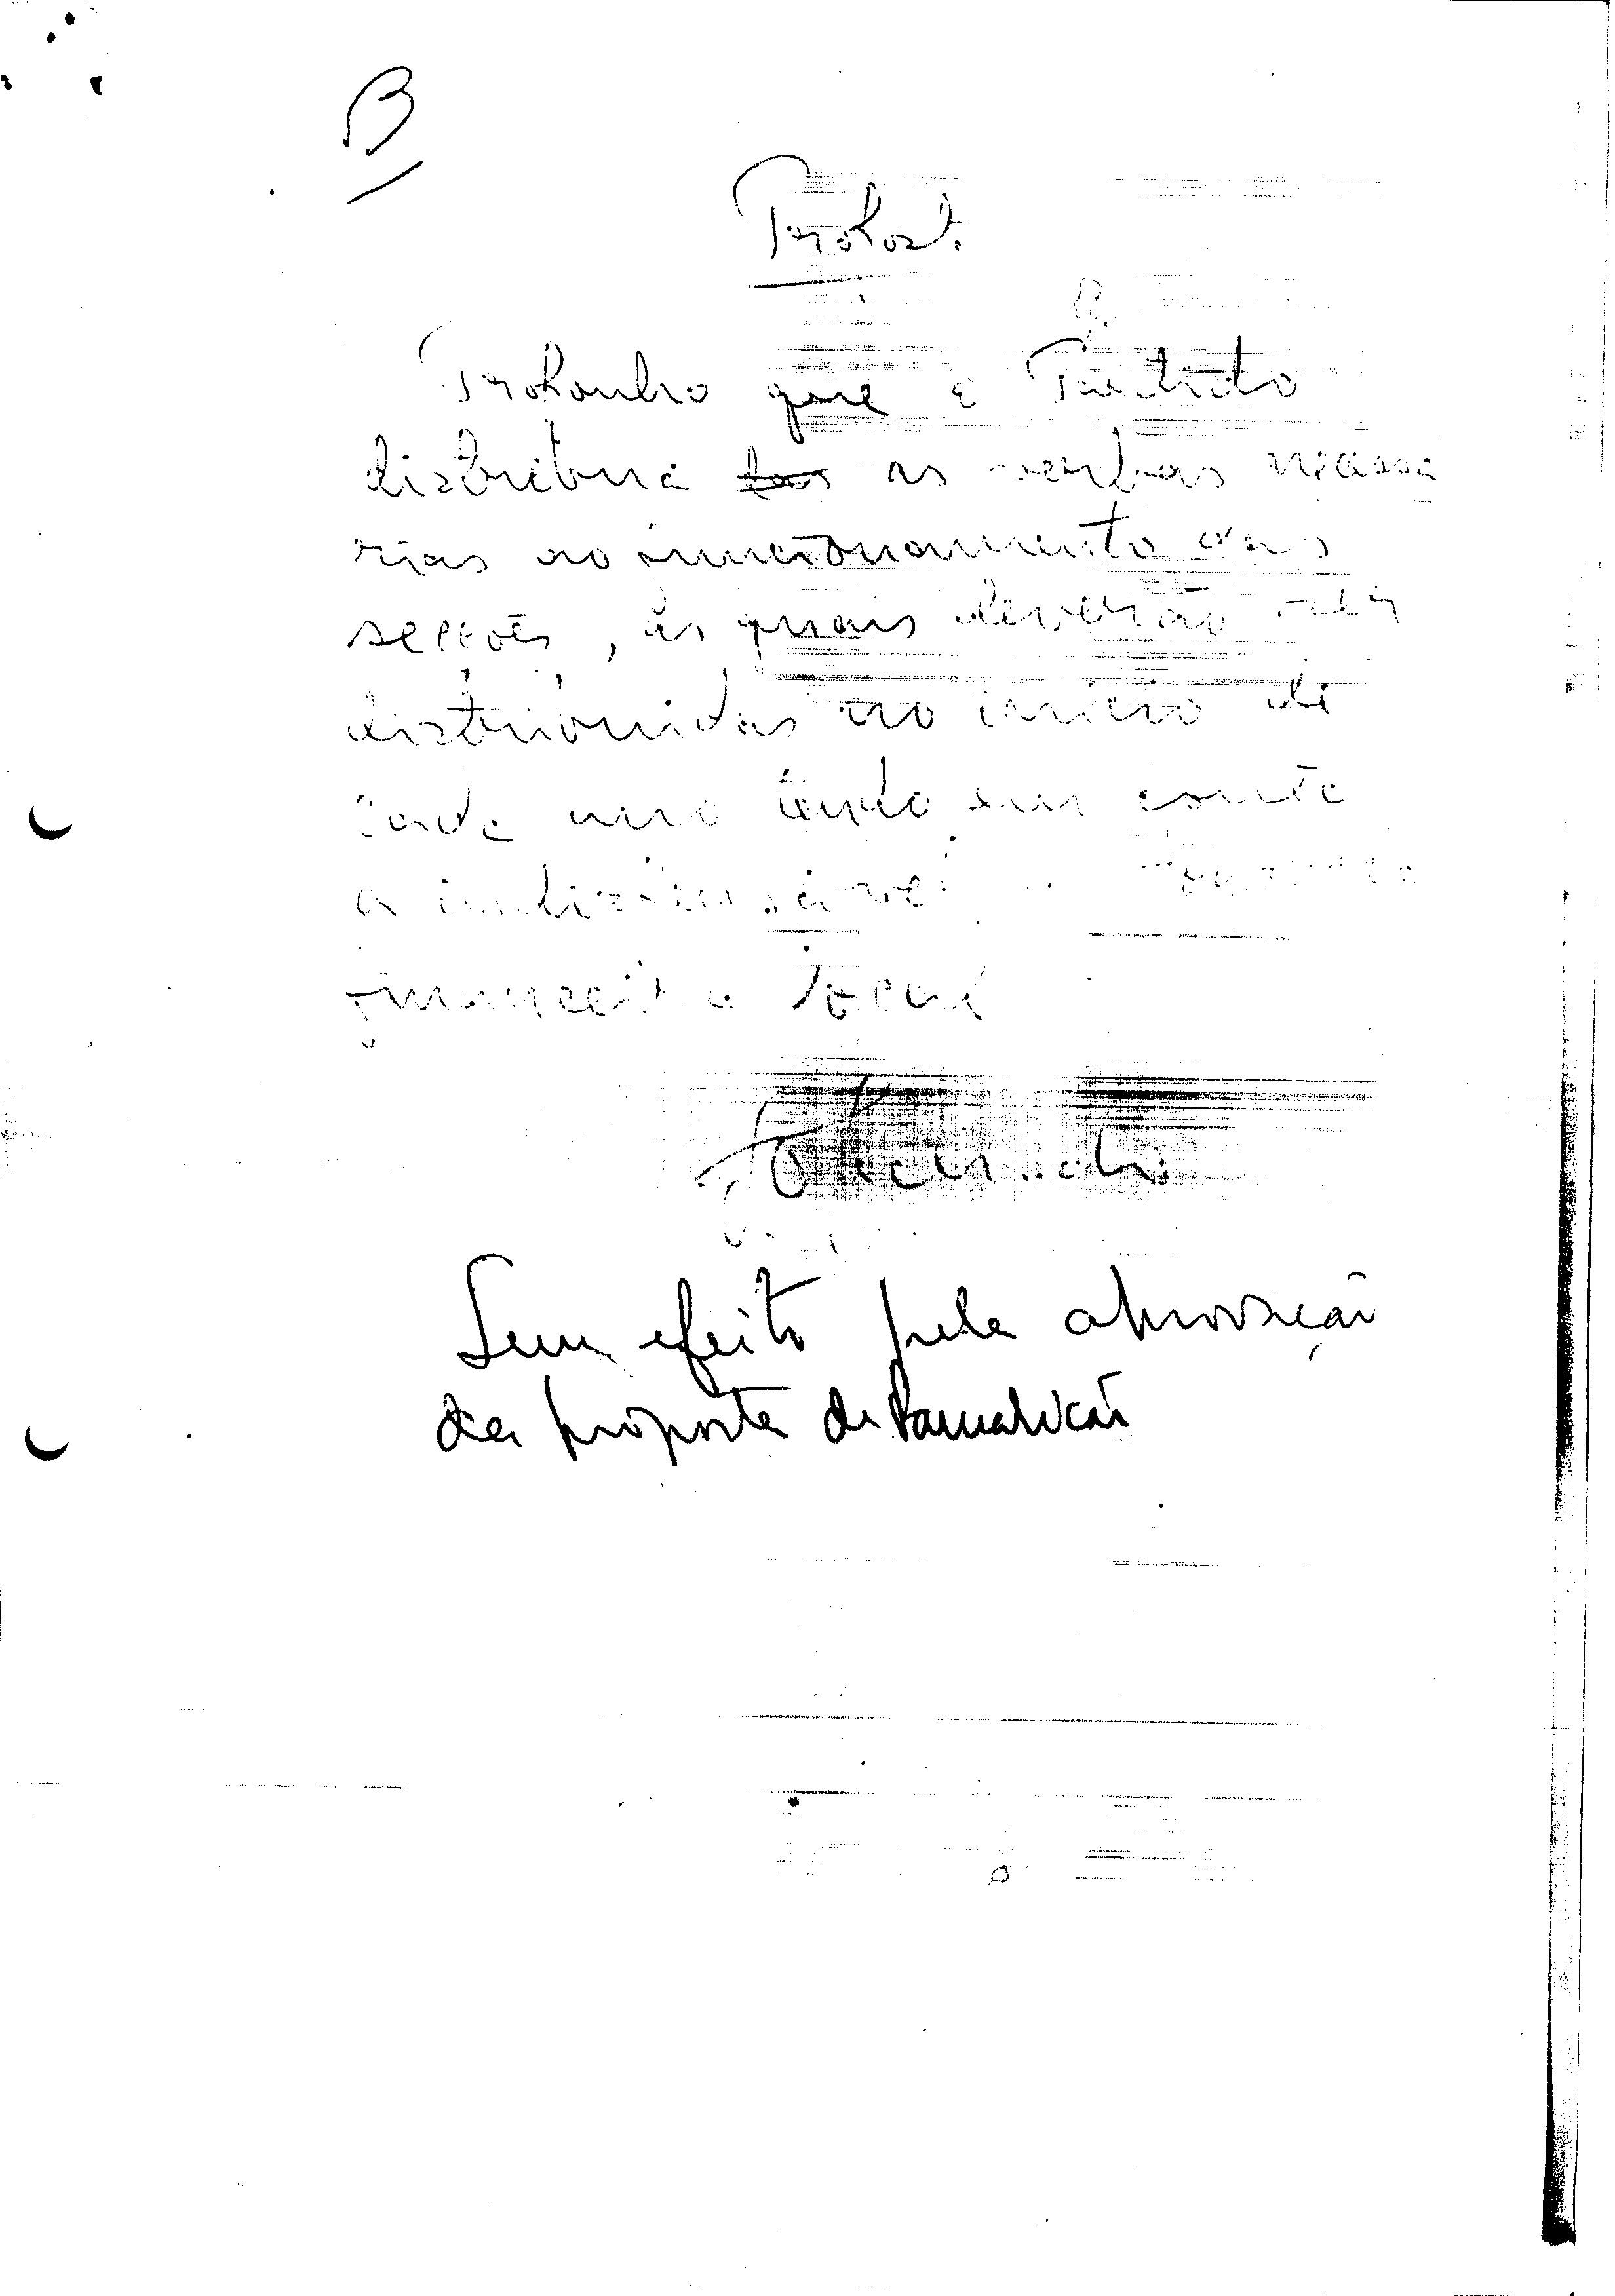 B
Propost.
Proponho que o Partido
distribua as verbas necessá
rias ao funcionamento das
secções, as quais deverão ser
distribuidas no inicio de
cada ano tendo em conta
a indispensável
financeira local
Sem efeito pela aprovação
da proposta de Ramalhão